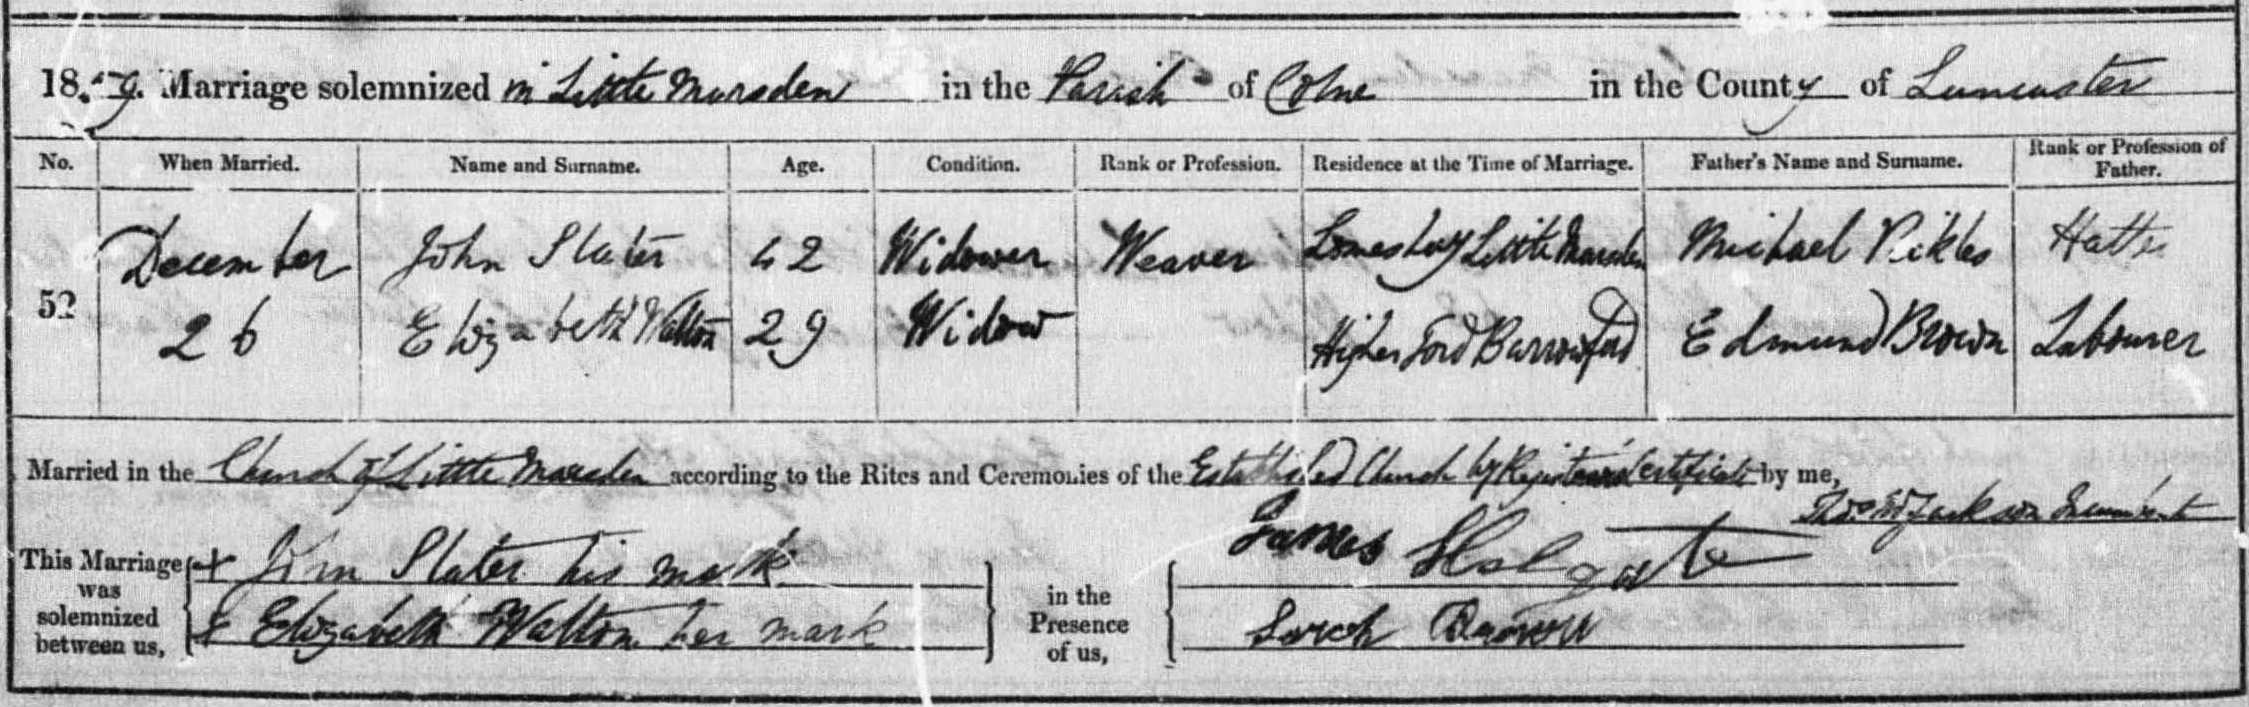 18 Marriage solemnized in Little Marsden in the Parish of Colne in the County of Lancaster
No. When Married. Name and Surname. Age. Condition. Rank or Profession. Residence at the Time of Marriage. Father's Name and Surname. Rank or Profession of Father.
December John Slater 42 Widower Weaver Lomeshay Little Marsden Michael Pikles Hatter
52 26 Elizabeth Walton 29 Widow Higher Ford Barrowford Edmund Brown Labourer
Married in the Church of Little Marsden according to the Rites and Ceremonies of the Established Church by Registrar's Certificate by me,
Jackson Incumbent
This Marriage was solemnized between us,
x John Slater his mark
x Elizabeth Walton her mark
in the Presence of us,
James Holgate
Sarah Brown